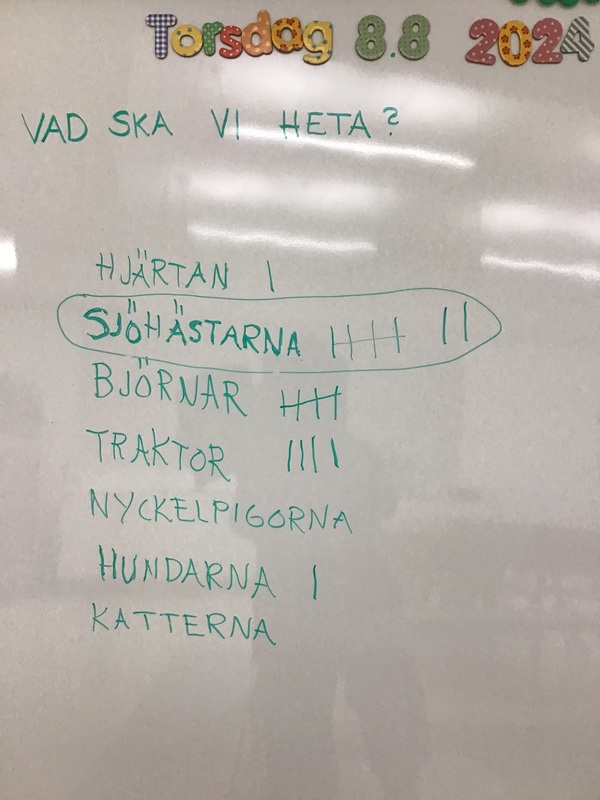 Torsdag 8.8 2024
VAD SKA VI HETA?
HJÄRTAN |
SJÖHÄSTARNA |||| ||
BJÖRNAR ||||
TRAKTOR ||||
NYCKELPIGORNA
HUNDARNA |
KATTERNA